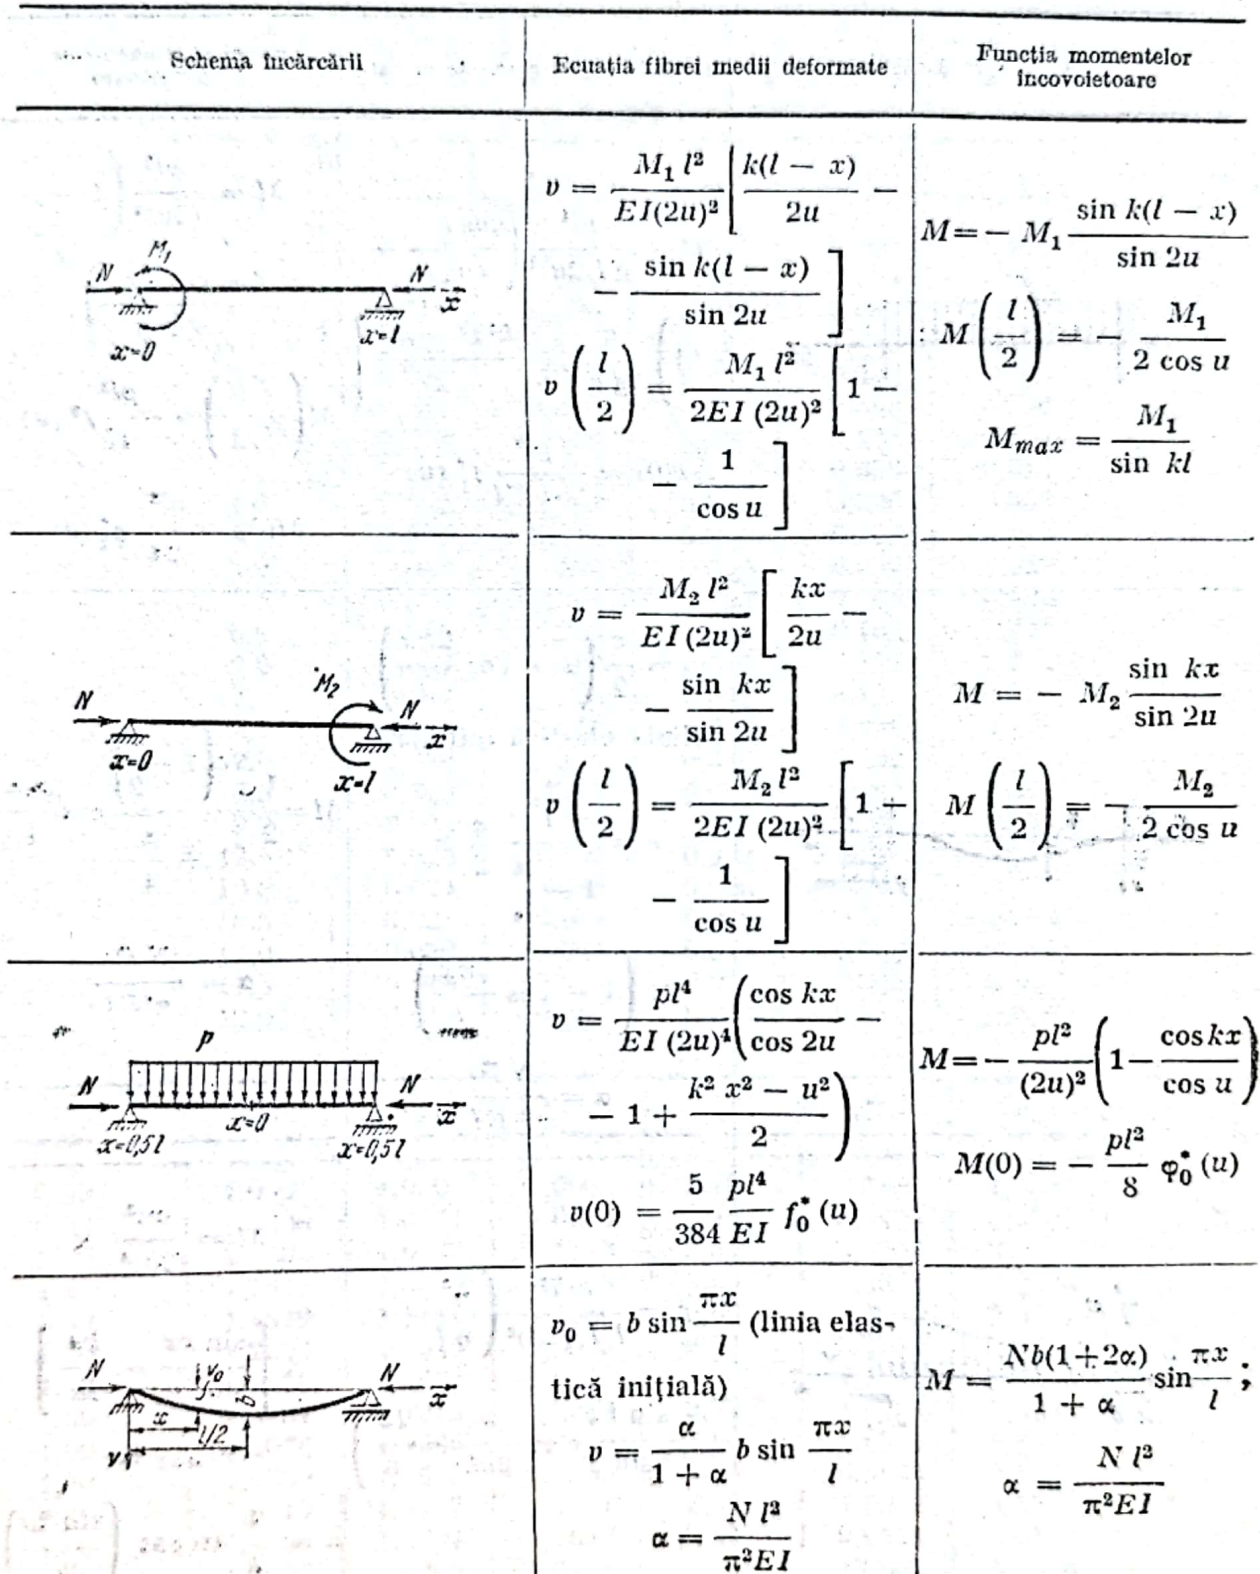 Schema încărcării
Ecuația fibrei medii deformate
Funcția momentelor
încovoietoare
N M₁ N x
x=0 x=l
v = \frac{M_1 l^2}{EI(2u)^2} [ \frac{k(l - x)}{2u} -
- \frac{\sin k(l - x)}{\sin 2u} ]
v (\frac{l}{2}) = \frac{M_1 l^2}{2EI (2u)^2} [ 1 -
- \frac{1}{\cos u} ]
M = - M_1 \frac{\sin k(l - x)}{\sin 2u}
M (\frac{l}{2}) = - \frac{M_1}{2 \cos u}
M_{max} = \frac{M_1}{\sin kl}
N M₂ N x
x=0 x=l
v = \frac{M_2 l^2}{EI (2u)^2} [ \frac{kx}{2u} -
- \frac{\sin kx}{\sin 2u} ]
v (\frac{l}{2}) = \frac{M_2 l^2}{2EI (2u)^2} [ 1 -
- \frac{1}{\cos u} ]
M = - M_2 \frac{\sin kx}{\sin 2u}
M (\frac{l}{2}) = - \frac{M_2}{2 \cos u}
p
N N x
x=0,5l x=0 x=0,5l
v = \frac{pl^4}{EI (2u)^4} ( \frac{\cos kx}{\cos 2u} -
- 1 + \frac{k^2 x^2 - u^2}{2} )
v(0) = \frac{5}{384} \frac{pl^4}{EI} f_0^* (u)
M = - \frac{pl^2}{(2u)^2} ( 1 - \frac{\cos kx}{\cos u} )
M(0) = - \frac{pl^2}{8} φ_0^* (u)
N v₀ b N x
x
l/2
v
v_0 = b \sin \frac{πx}{l} (linia elas-
tică inițială)
v = \frac{α}{1 + α} b \sin \frac{πx}{l}
α = \frac{N l^2}{π^2 EI}
M = \frac{Nb(1 + 2α)}{1 + α} \sin \frac{πx}{l} ;
α = \frac{N l^2}{π^2 EI}